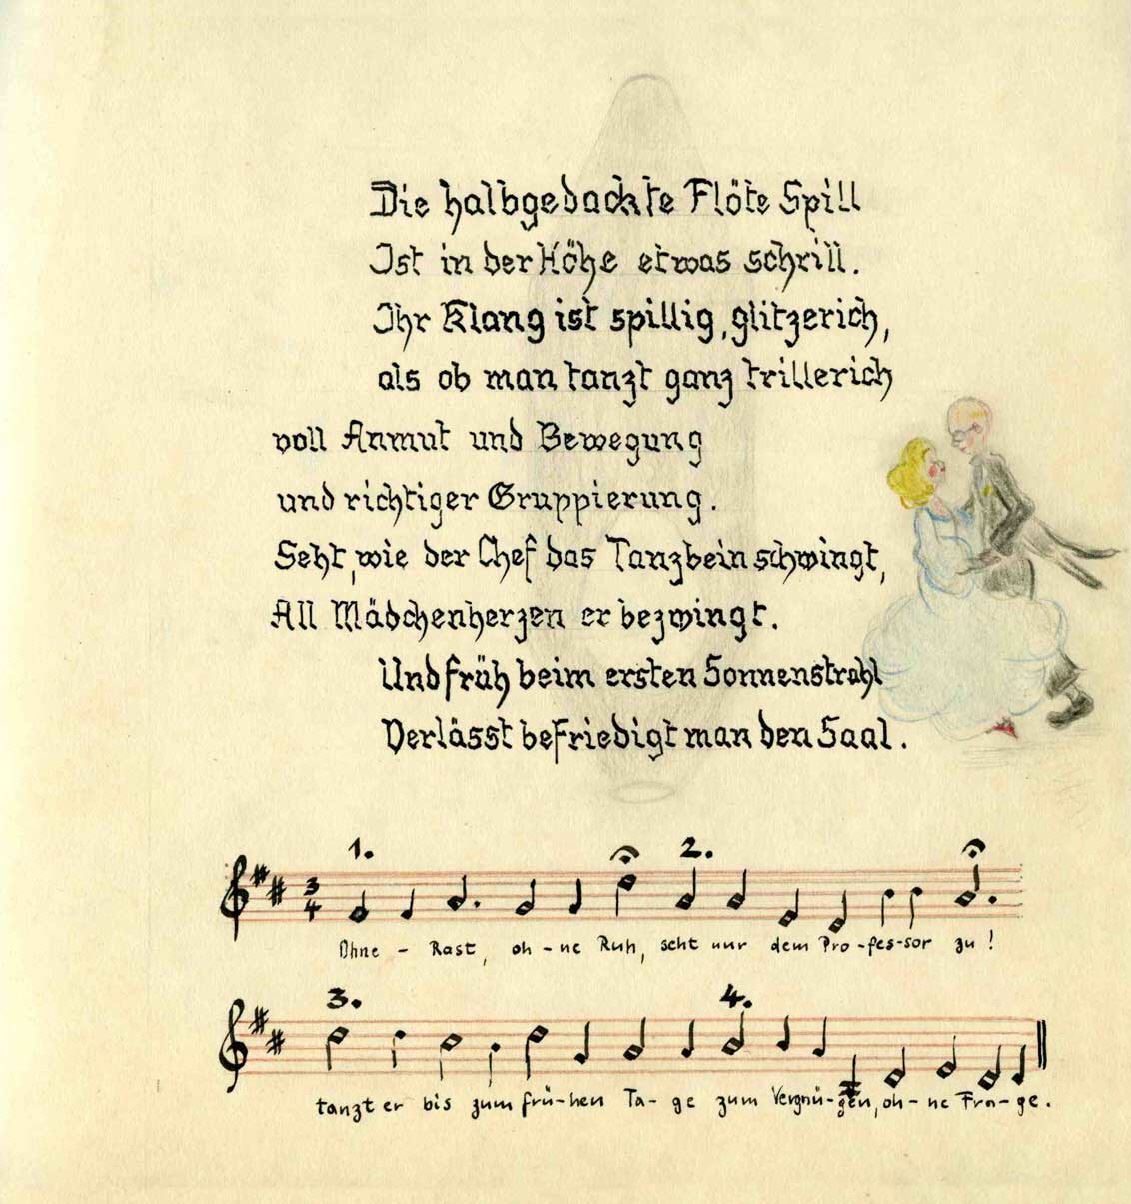 Die halbgedackte Flöte Spill
Ist in der Höhe etwas schrill.
Ihr Klang ist spillig, glitzerich,
als ob man tanzt ganz trillerich
voll Anmut und Bewegung
und richtiger Gruppierung.
Seht, wie der Chef das Tanzbein schwingt,
All Mädchenherzen er bezwingt.
Und früh beim ersten Sonnenstrahl
Verlässt befriedigt man den Saal.
1. 2.
3
4
Ohne - Rast, oh-ne Ruh, seht nur dem Pro-fes-sor zu!
3. 4.
tanzt er bis zum frü-hen Ta-ge zum Vergnü-gen, oh-ne Fra-ge.